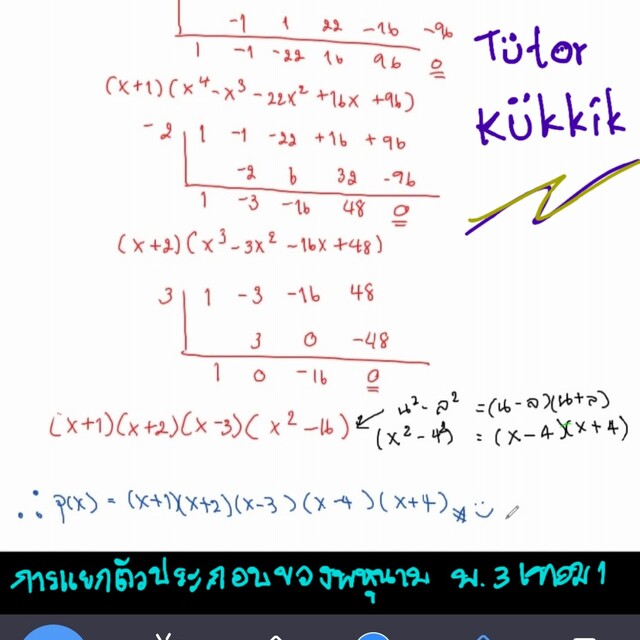 -1 1 22 -16 -96
1 -1 -22 16 96 0
Tutor
Kukkik
(x+1)(x⁴-x³-22x²+16x+96)
-2 1 -1 -22 +16 +96
-2 6 32 -96
1 -3 -16 48 0
(x+2)(x³-3x²-16x+48)
3 1 -3 -16 48
3 0 -48
1 0 -16 0
น²-ล² =(น-ล)(น+ล)
(x+1)(x+2)(x-3)(x²-16)
(x²-4²) = (x-4)(x+4)
∴ p(x) = (x+1)(x+2)(x-3)(x-4)(x+4)
การแยกตัวประกอบของพหุนาม ม.3 เทอม 1